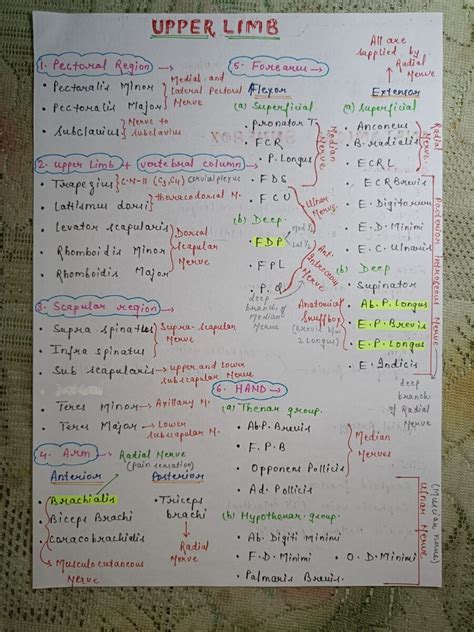 UPPER LIMB
1. Pectoral Region →
• Pectoralis Minor
• Pectoralis Major
Medial and
lateral Pectoral
Nerve
• Subclavius
Nerve to
subclavius
2. Upper Limb + vertebral column
• Trapezius
C.N-11 (C3,C4) Cervial plexus
• Latissmus dorsi
thoracodorsal N.
• Levator scapularis
• Rhomboidis Minor
• Rhomboidis Major
Dorsal
Scapular
Nerve
3. Scapular region
• Supra spinatus
• Infra spinatus
Supra-scapular
Nerve
• Sub scapularis → upper and lower
subscapular Nerve
• Teres Minor → Axillary N.
• Teres Major → Lower
subscapular N.
4. Arm → Radial Nerve
(pain sensation)
Anterior
• Brachialis
• Biceps Brachi
• Coracobrachialis
Musculocutaneous
Nerve
Posterior
• Triceps
brachi
Radial
Nerve
5. Forearm →
Flexor
(a) Superficial
• Pronator T.
• F C R
• P. Longus
• F D S
Median
Nerve
• F C U
Ulnar
Nerve
(b) Deep
• F D P
Med 1/2
Lat 1/2
• F P L
• P. Q
Ant.
Interosseous
Nerve
deep
branch of
Median
Nerve
All are
supplied by
Radial
Nerve
Extensor
(a) Superficial
• Anconeus
• B. radialis
• E C R L
Radial
Nerve
• E C R Brevis
• E. Digitorum
• E. D. Minimi
• E. C. Ulnaris
(b) Deep
• Supinator
• Ab. P. Longus
• E. P. Brevis
• E. P. Longus
• E. Indicis
Anatomical
Snuffbox
(Brevis b/w
2 Longus)
Posterior Interosseous Nerve
deep
branch
of Radial
Nerve
6. HAND →
(a) Thenar group
• Ab. P. Brevis
• F. P. B
• Opponens Pollicis
Median
Nerves
• Ad. Pollicis
(b) Hypothenar group
• Ab. Digiti Minimi
• F. D. Minimi
• O. D. Minimi
• Palmaris Brevis.
Ulnar Nerve